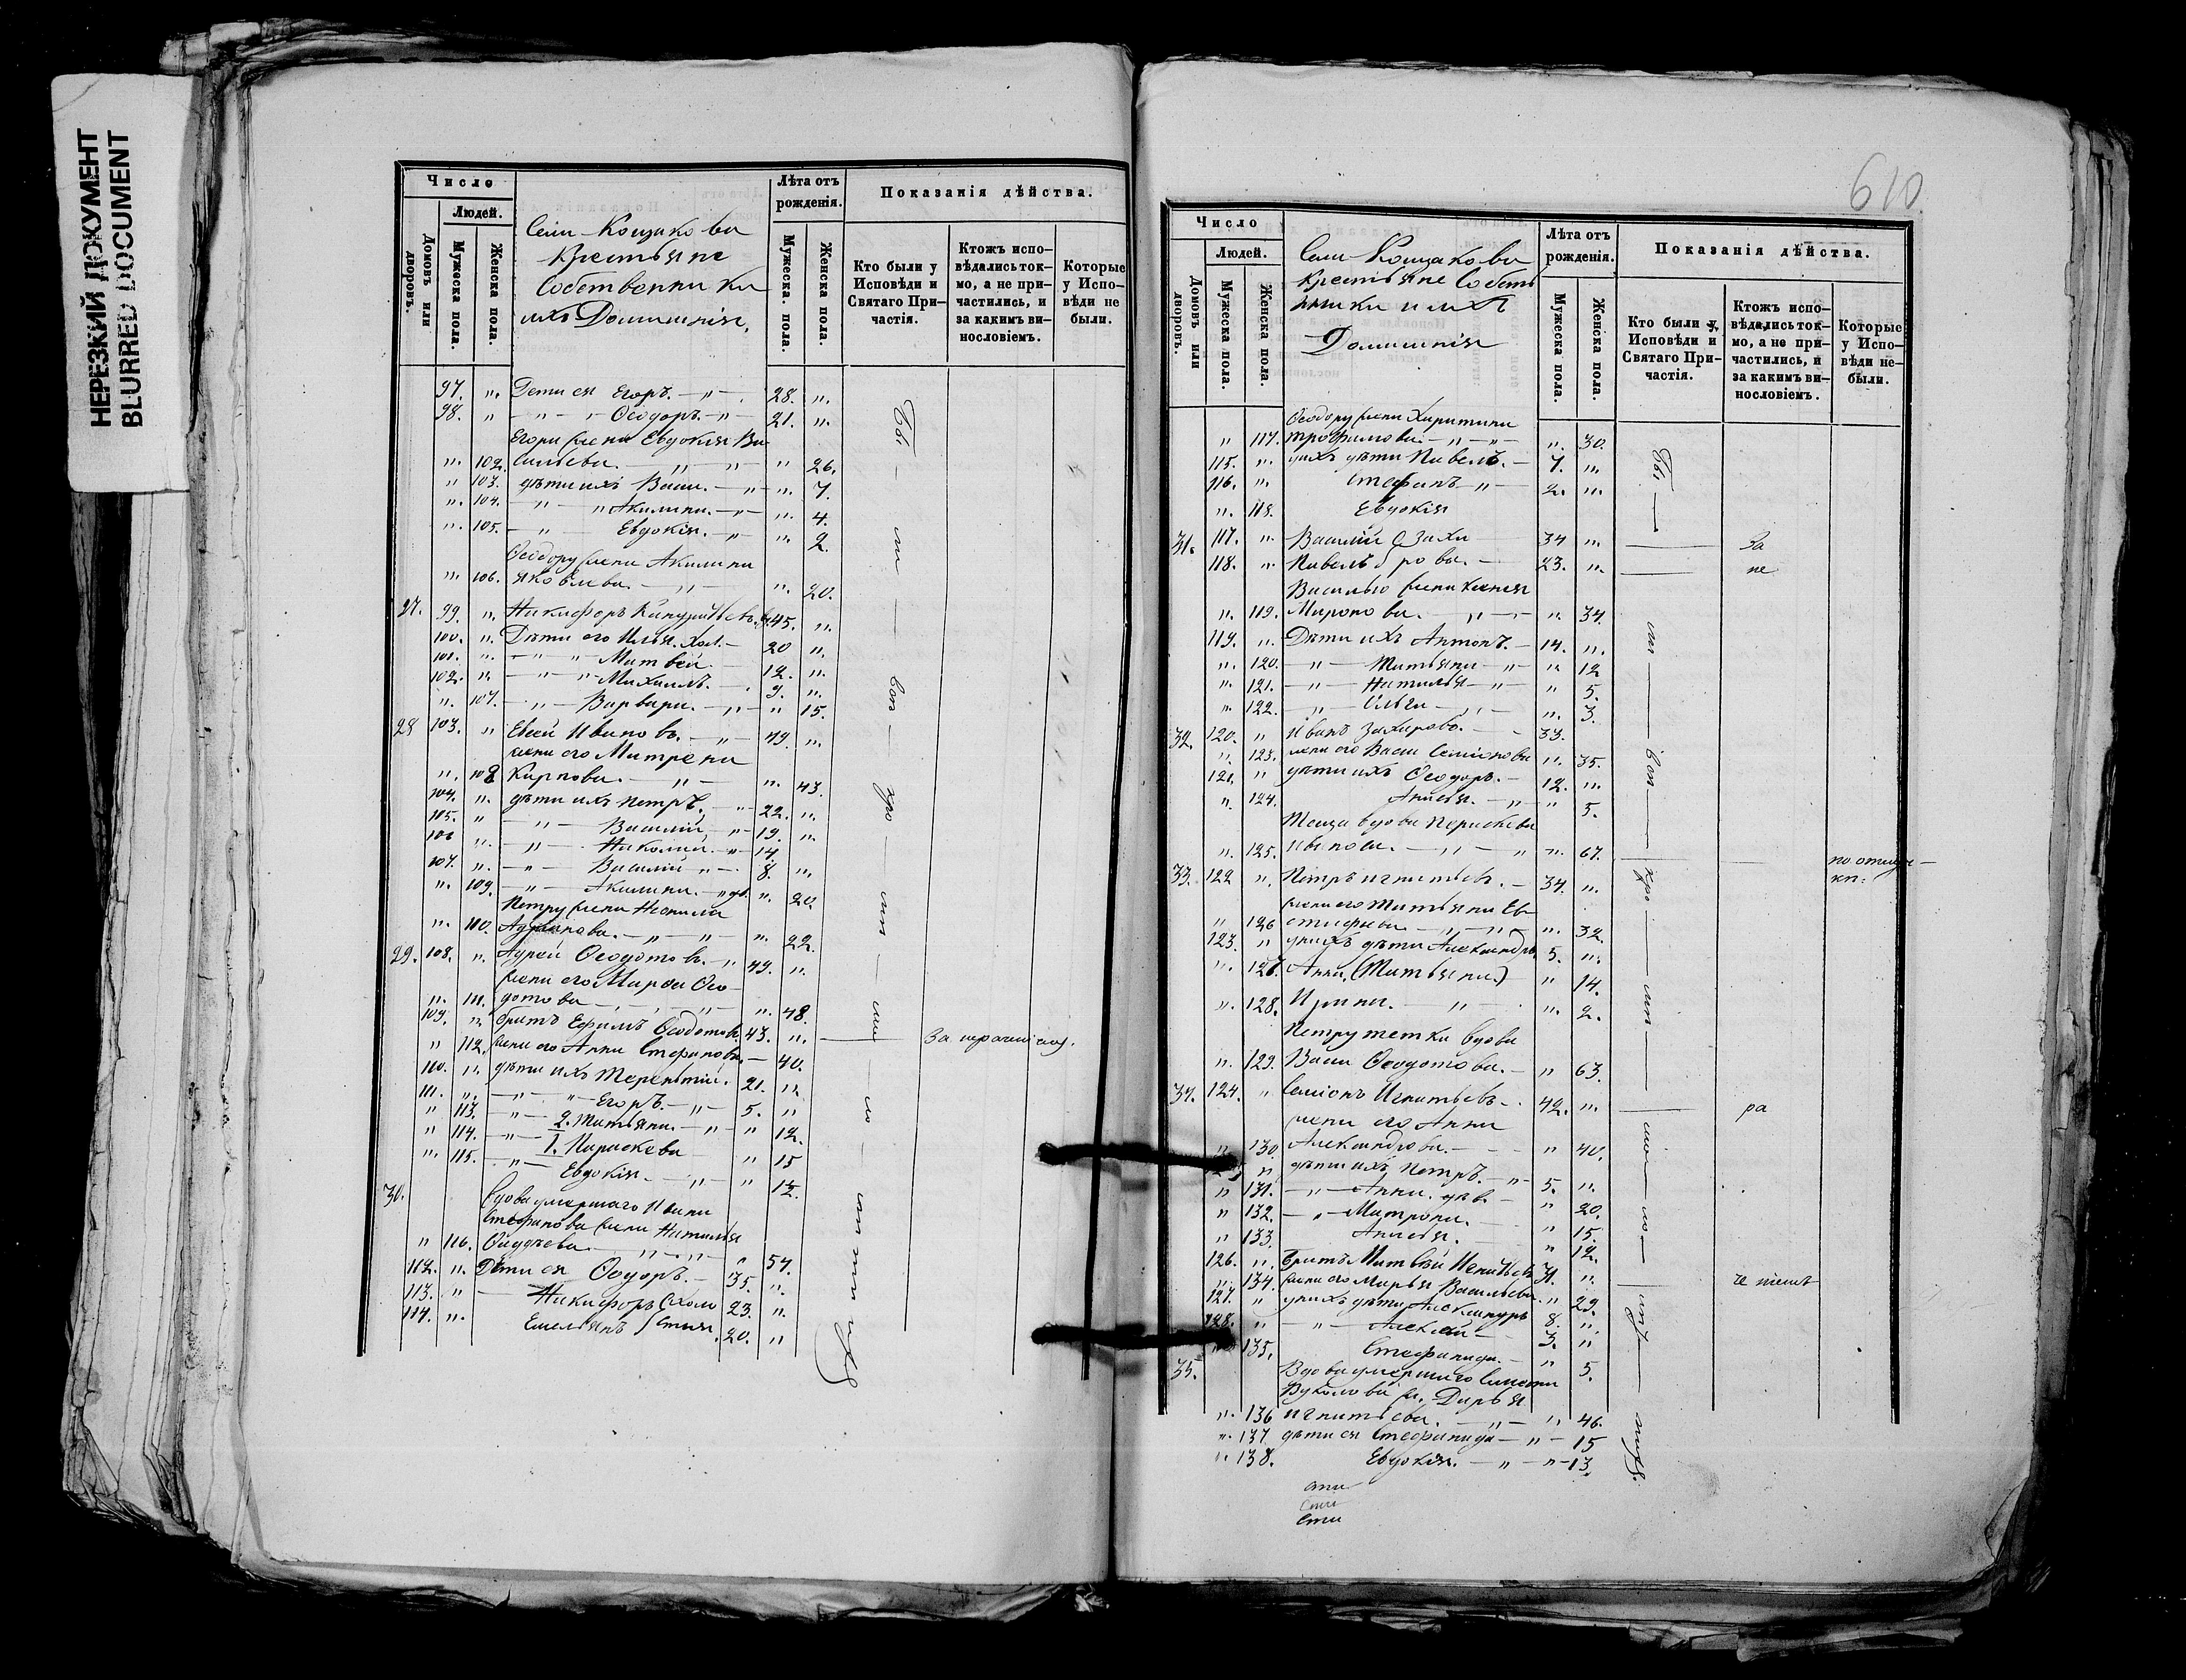 НЕРЕЗКИЙ ДОКУМЕНТ
BLURRED DOCUMENT
Число
Людей.
Домовъ или дворовъ.
Мужеска пола.
Женска пола.
Села Кощакова
Крестьяне
Собственники
ихъ Домашнiя.
Лѣта отъ рожденія.
Мужеска. пола.
Женска пола.
Показанія дѣйства.
Кто были у Исповѣди и Святаго Причастія.
Ктожъ исповѣдались токмо, а не причастились, и за какимъ винословіемъ.
Которые у Исповѣди не были.
97. " Дети ея Егоръ. - " - 28. "
98. " - " - Ѳеодоръ. - " - 21. "
Егора жена Евдокiя Ва
" 102. сильева. - " - " 26.
" 103. дѣти ихъ Васи. - " - " 7.
" 104. - " - Акилина. - " - " 4.
" 105. - " - Евдокiя. - " - " 2.
Ѳеодору жена Акилина
" 106. Яковлева. - " - " 20.
27. 99. " Никифоръ 45. "
100. " Дѣти его Илья. Хол. - 20 "
101. " - " - Матвей. - 12. "
102. " - " - Михаилъ. - 9. "
" 107. - " - Варвара. - " - " 15.
28 103. " Евсей Ивановъ. - " - 49. "
жена его Матрена
" 108 Карпова. - " - " 43.
104. " дѣти ихъ Петръ. - " 22. "
105. " - " - Василiй - " - 19. "
106 " - " - Николай. - " - 14.
107. " - " - Василiй - " - 8. "
" 109. - " - Акилина. - " дв. " 20.
Петру жена Неонила
" 110. Адрiанова. - " - " - " 22.
29. 108. " Адрей Ѳеодотовъ. - " 49. "
жена его Марѳа Ѳео-
" 111. дотова - " - " 48.
109. " братъ Ефимъ Ѳеодотовъ 43. " За нерачениемъ.
" 112. жена его Анна Стефанова. - 40.
110. " дѣти ихъ Терентiй. 21. "
111. " - " - Егоръ. - " - 5. "
" 113. - " - 2. Татьяна. - " - " 12.
" 114. - " - 1. Параскева " 15
" 115. - " - Евдокiя. - " - " 12.
30. Вдова умершаго Ивана
Стефанова жена Наталья
" 116. Ѳаддеева - " - " - " 57.
112. " Дѣти ея Ѳедоръ. - 35. "
113. " - Никифоръ Холо 23. "
114. " Емельянъ стые 20. "
610
Число
Людей.
Домовъ или дворовъ.
Мужеска пола.
Женска пола.
Села Кощакова
Крестьяне Собств
нники и ихъ
Домашнiя
Лѣта отъ рожденія.
Мужеска пола.
Женска пола.
Показанія дѣйства.
Кто были у Исповѣди и Святаго Причастія.
Ктожъ исповѣдались токмо, а не причастились, и за какимъ винословіемъ.
Которые у Исповѣди не были.
Ѳеодору жена Харитина
" 117. Трофимова. - " - " - " 30.
115. " у ихъ дѣти Павелъ. - 7. "
116. " Стефанъ - " - 2. "
" 118. Евдокiя
31. 117. " Василiй Заха 34 " За
118. " Павелъ рова. - 23. " не
Василью жена Ксенiя
" 119. Миронова. - " - " 34.
119. " Дѣти ихъ Антонъ. - 14. "
" 120. - " - Татьяна - " - " 12
" 121. - " - Наталья - " - " 5.
" 122. - " - Ольга - " - " 3.
32. 120. " Иванъ Захаровъ. - 33.
" 123. жена его Васи Семiонова " 35.
121. " дѣти ихъ Ѳеодоръ. - 12. "
" 124. Анисья. - " - " 5.
Теща вдова Параскева
" 125. Иванова. - " - " - " 67. по отлуч-
33. 122 " Петръ Игнатьевъ. - 34. " кѣ.
жена его Татьяна Ев-
" 126 стафьева. - " - " - " 32.
123. " у нихъ дѣти Александръ 5. "
" 127. Анна, (Татьяна.) " 14.
" 128. Ирина. - " - " 2.
Петру тетка вдова
" 129. Васи Ѳеодотова. - " 63.
34. 124. " Семiонъ Игнатьевъ - 42. " ра
жена его Анна
" 130. Александрова. - " 40.
" дѣти ихъ Петръ. - " - 5. "
" 131. - " - Анна. дѣв. - " 20.
" 132. - " - Матрона. " 15.
" 133. Анисья. " 12.
126. " Братъ Матвей Игнатьевъ 31. " ченiемъ
" 134. жена его Марья Васильева. " 29.
127. " у нихъ дѣти Александръ 8. "
128. " - " - Алексей - 3. "
" 135. Стефанида. - " 5.
35. Вдова умершаго Симеона
Вуколова ж. Дарья
" 136 Игнатьева. - " - " 46.
" 137 дѣти ея Стефанида - " - 15
" 138. Евдокiя. - " - " - 13.